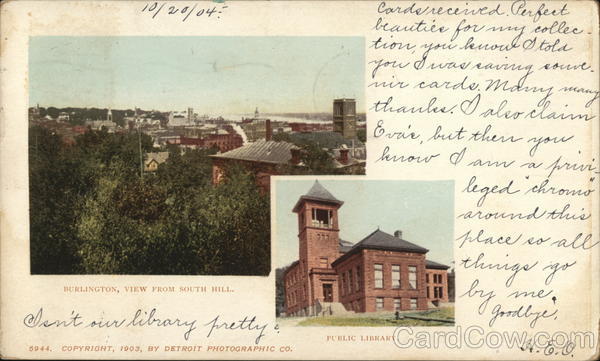 10/20/04-
Cards received. Perfect
beauties for my collec-
tion, you know I told
you I was saving souve-
nir cards. Many many
thanks. I also claim
Eva's, but then you
know I am a privi-
leged "chromo"
around this
place so all
things go
by me.
Goodbye,
H.E.O.
BURLINGTON, VIEW FROM SOUTH HILL.
Isn't our library pretty?
PUBLIC LIBRARY
5944. COPYRIGHT, 1903, BY DETROIT PHOTOGRAPHIC CO.
CardCow.com